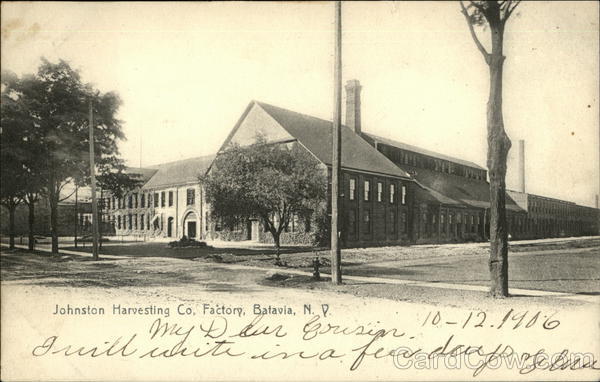 Johnston Harvesting Co. Factory, Batavia, N. Y.
My Dear Cousin. 10-12 1906
I will write in a few days
CardCow.com